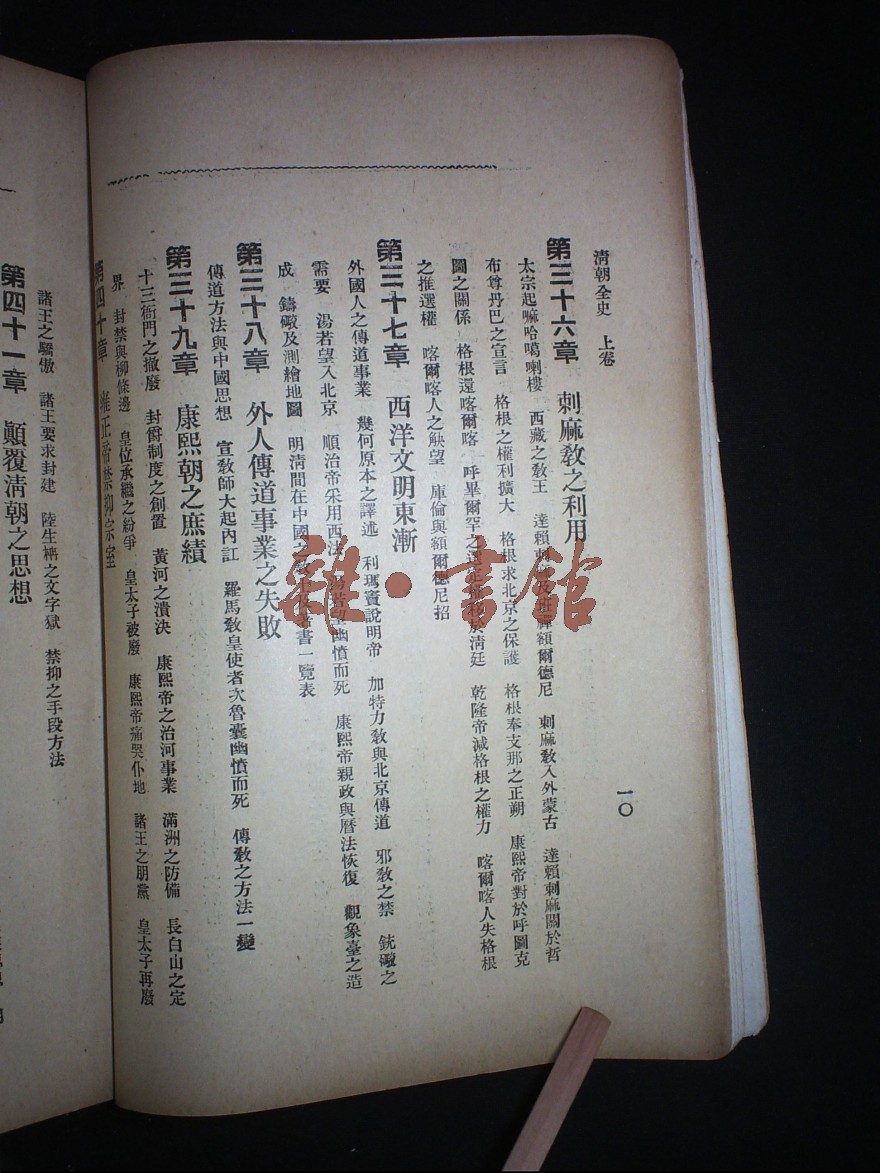 清朝全史　上卷
一〇
第三十六章　剌麻敎之利用
太宗起嘛哈噶喇樓　西藏之敎王　達賴剌麻及班禪額爾德尼　剌麻敎入外蒙古　達賴剌麻關於哲
布尊丹巴之宣言　格根之權利擴大　格根求北京之保護　格根奉支那之正朔　康熙帝對於呼圖克
圖之關係　格根還喀爾喀　呼畢爾罕之選定　於淸廷　乾隆帝減格根之權力　喀爾喀人失格根
之推選權　喀爾喀人之觖望　庫倫與額爾德尼招
第三十七章　西洋文明東漸
外國人之傳道事業　幾何原本之譯述　利瑪竇說明帝　加特力敎與北京傳道　邪敎之禁　銃礮之
需要　湯若望入北京　順治帝采用西法　湯若望幽憤而死　康熙帝親政與曆法恢復　觀象臺之造
成　鑄礮及測繪地圖　明淸間在中國之　書一覽表
第三十八章　外人傳道事業之失敗
傳道方法與中國思想　宣敎師大起內訌　羅馬敎皇使者次魯囊幽憤而死　傳敎之方法一變
第三十九章　康熙朝之庶績
十三衙門之撤廢　封爵制度之創置　黃河之潰決　康熙帝之治河事業　滿洲之防備　長白山之定
界　封禁與柳條邊　皇位承繼之紛爭　皇太子被廢　康熙帝痛哭仆地　諸王之朋黨　皇太子再廢
第四十章　雍正帝禁抑宗室
諸王之驕傲　諸王要求封建　陸生枏之文字獄　禁抑之手段方法
第四十一章　顚覆淸朝之思想
雜·書館